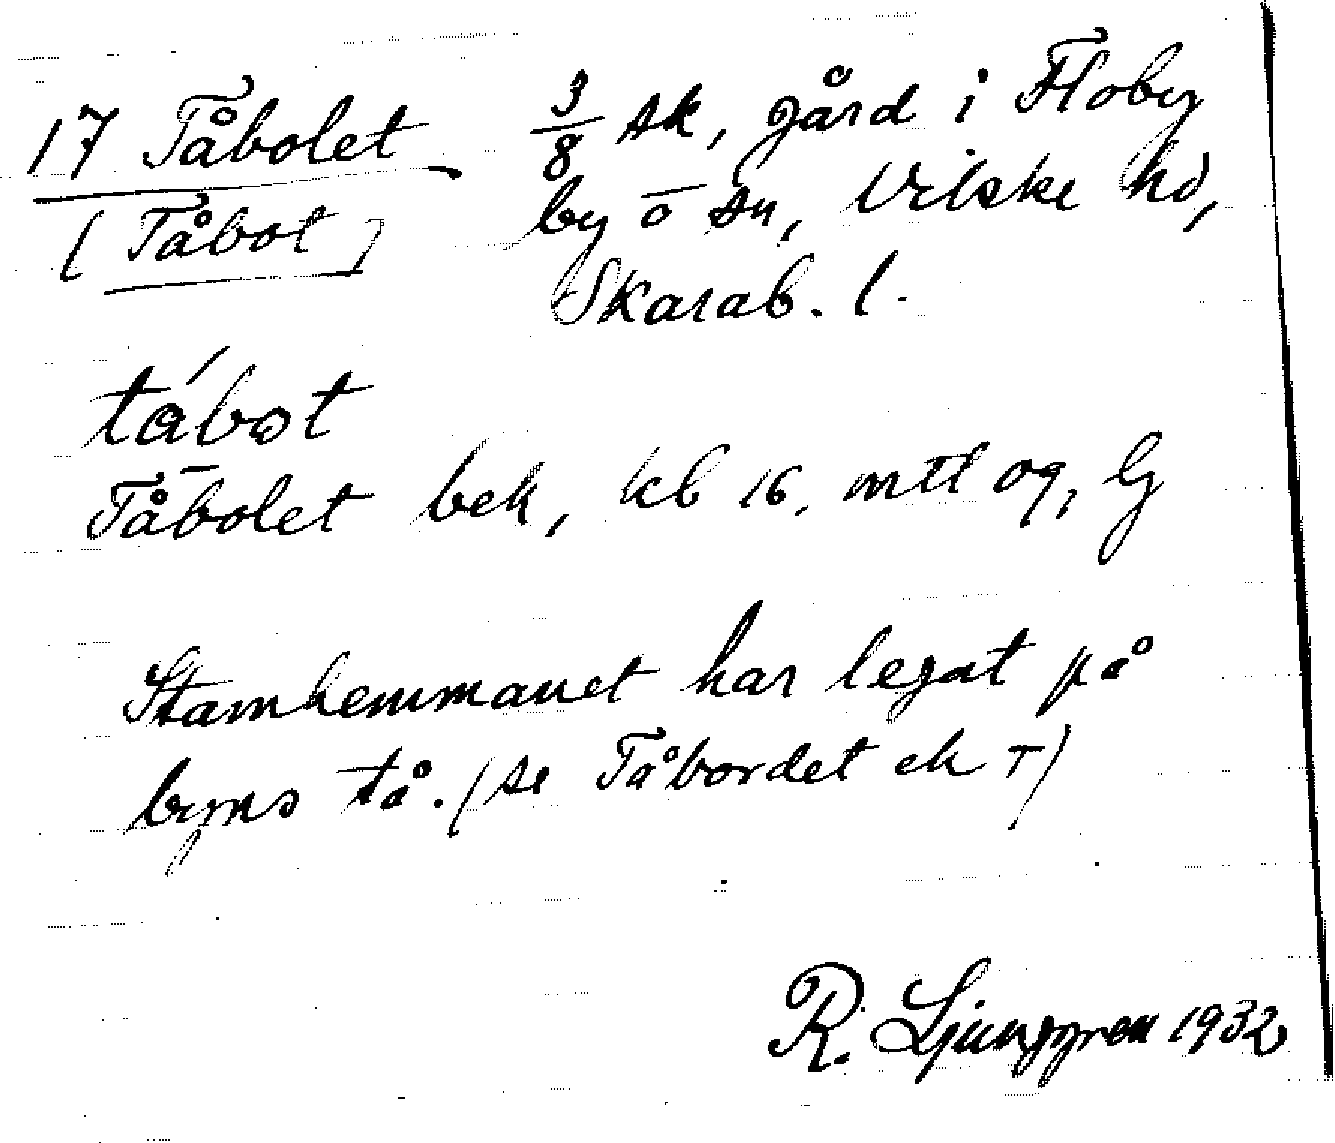 17 Tåbolet 3/8 sk, gård i Floby
[Tåbot] by o sn, Vilske hd,
Skarab. l.
tábot
Tåbolet bek, kb 16, mtl og, G
Stamhemmanet har legat på
byns tå. (se Tåbordet ek T)
R. Ljunggren 1932